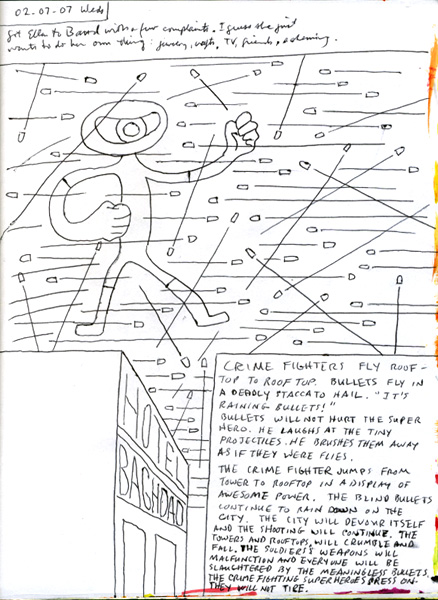 02.07.07 Weds
Got Ella to Bard with a few complaints. I guess she just
wants to do her own thing: jewelry, crafts, TV, friends,
CRIME FIGHTERS FLY ROOF-
TOP TO ROOFTOP. BULLETS FLY IN
A DEADLY STACCATO HAIL. "IT'S
RAINING BULLETS!"
BULLETS WILL NOT HURT THE SUPER
HERO. HE LAUGHS AT THE TINY
PROJECTILES. HE BRUSHES THEM AWAY
AS IF THEY WERE FLIES.
THE CRIME FIGHTER JUMPS FROM
TOWER TO ROOFTOP IN A DISPLAY OF
AWESOME POWER. THE BLIND BULLETS
CONTINUE TO RAIN DOWN ON THE
CITY. THE CITY WILL DEVOUR ITSELF
AND THE SHOOTING WILL CONTINUE. THE
TOWERS AND ROOFTOPS, WILL CRUMBLE AND
FALL. THE SOLDIERS'S WEAPONS WILL
MALFUNCTION AND EVERYONE WILL BE
SLAUGHTERED BY THE MEANINGLESS BULLETS.
THE CRIME FIGHTING SUPERHEROES PRESS ON.
THEY WILL NOT TIRE.
HOTEL
BAGHDAD